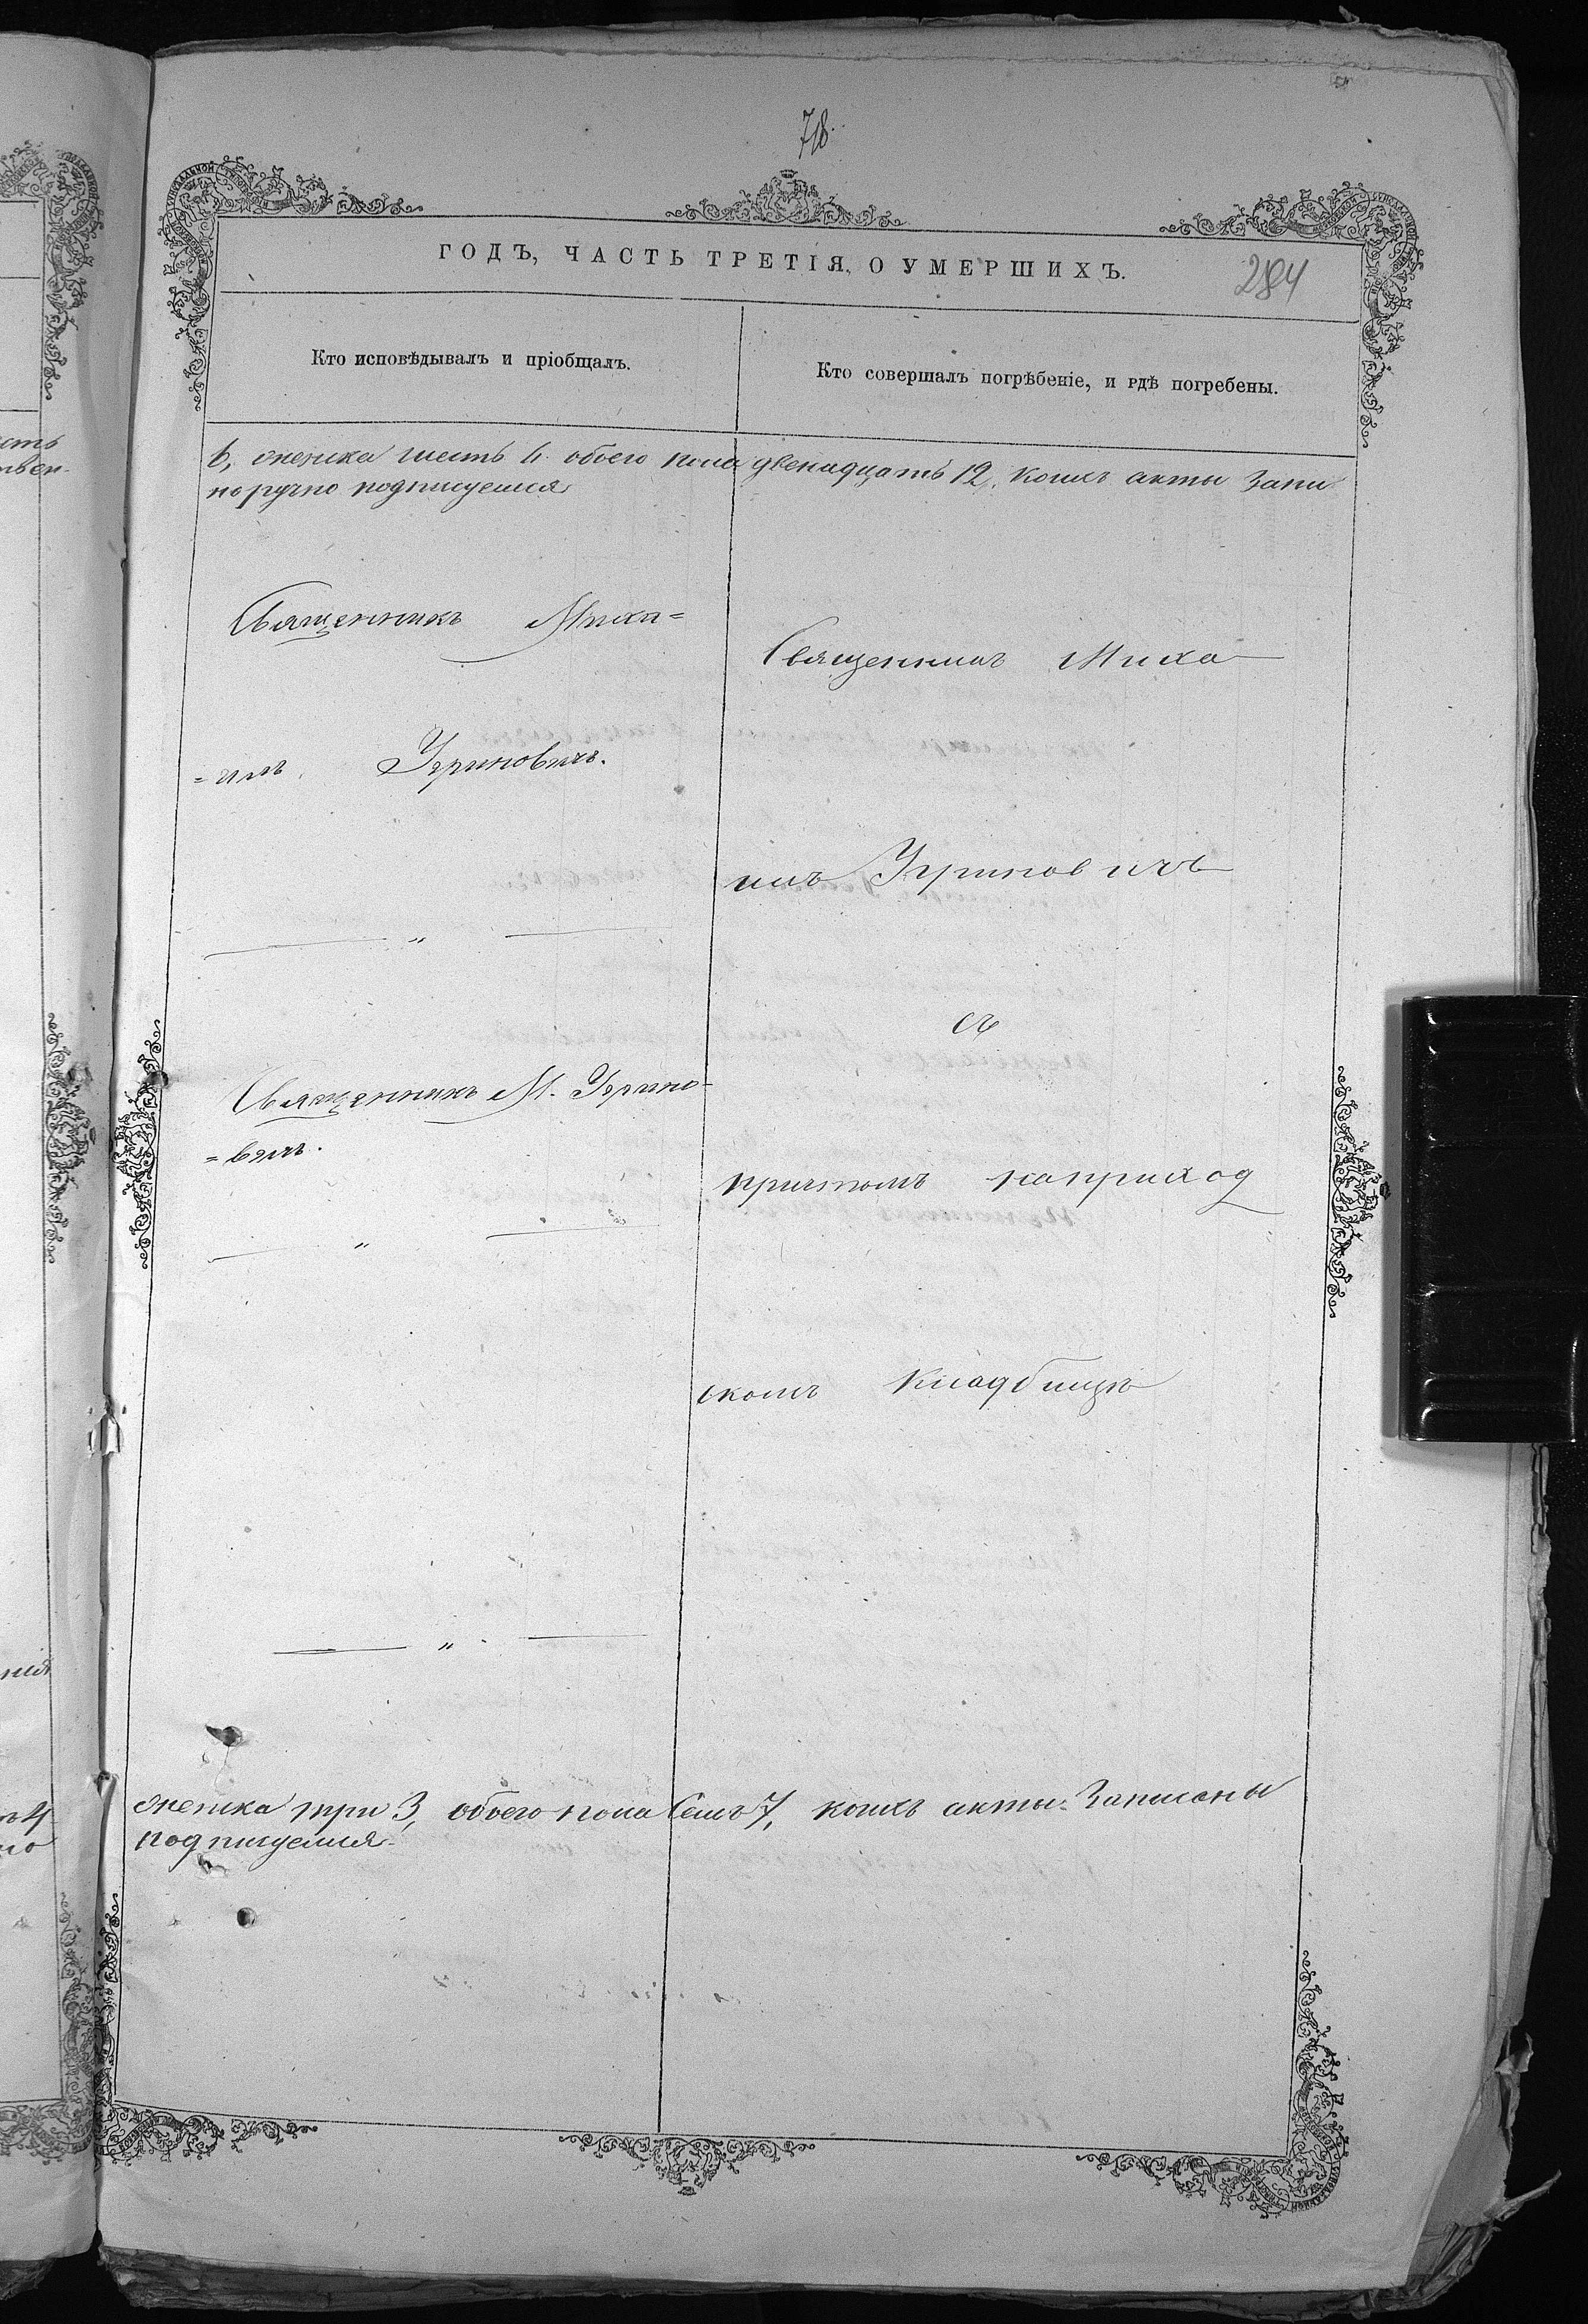 718.
ГОДЪ, ЧАСТЬ ТРЕТІЯ, О УМЕРШИХЪ.
284
Кто исповѣдывалъ и пріобщалъ.
Кто совершалъ погрѣбеніе, и гдѣ погребены.
6, женска шесть 6. обоего пола двенадцать 12, коихъ акты Запи
норучно подписуемся
Священникъ Миха=
=илъ Угриновичъ.
Священникъ Миха
илъ Угриновичъ
съ
Священникъ М. Угрино=
=вичъ.
причтомъ наприход
скомъ Кладбищѣ
женска три 3, обоего пола Семь 7, коихъ акты Записаны
подписуемся